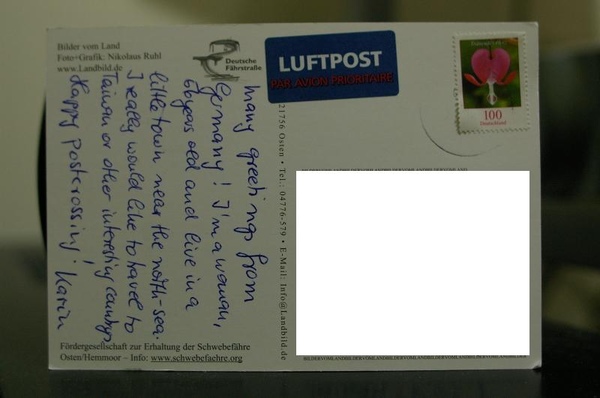 Bilder vom Land
Foto+Grafik: Nikolaus Ruhl
www.Landbild.de
Deutsche
Fährstraße
LUFTPOST
PAR AVION PRIORITAIRE
100
Deutschland
many greetings from
Germany! I'm a woman,
years old and live in a
little town near the north-sea.
I really would like to travel to
Taiwan or other interesting countrys.
Happy postcrossing! Karin
21756 Osten • Tel.: 04776-579 • E-Mail: Info@Landbild.de
Fördergesellschaft zur Erhaltung der Schwebefähre
Osten/Hemmoor – Info: www.schwebefaehre.org